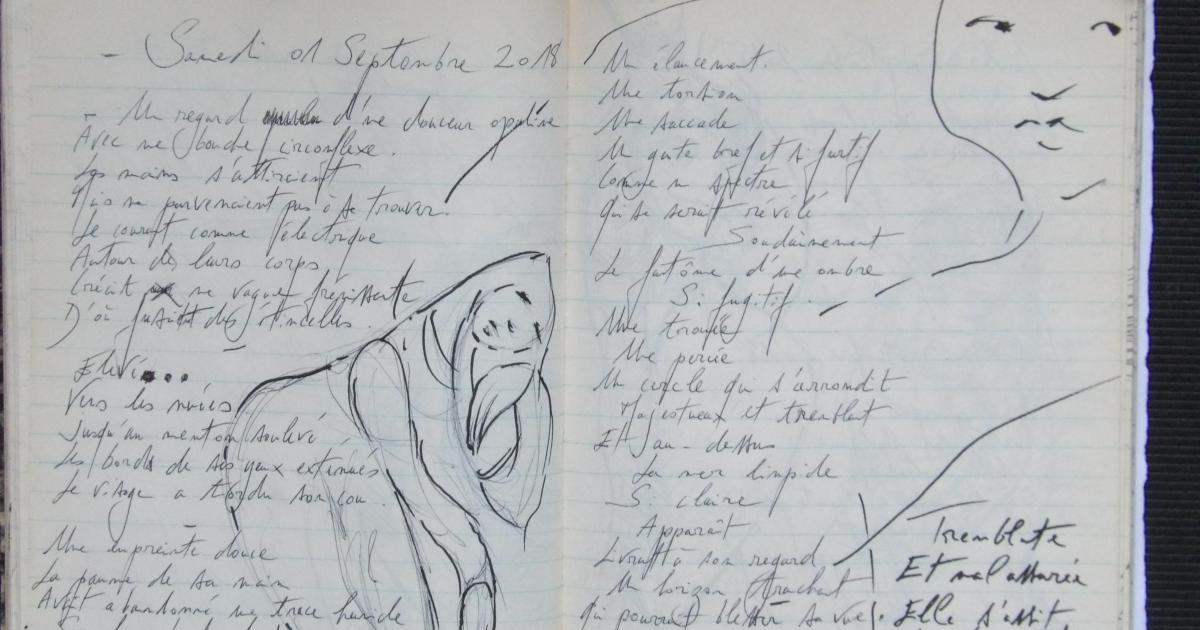 - Samedi 01 Septembre 2018
- Un regard d'une douceur opaline
Avec une bouche circonflexe.
Les mains s'attiraient
Mais ne parvenaient pas à se trouver.
Le courant comme électrique
Autour de leurs corps
Créait une vague frémissante
D'où jusaient des étincelles.
Vers les nuées
Jusqu'au menton soulevé
Les bords de ses yeux exténués
Le visage a tordu son cou.
Une empreinte douce
La paume de sa main
Avait abandonné une trace humide
Un élancement.
Une torsion
Une saccade
Un geste bref et si furtif
Comme un spectre
Qui se serait révélé
Soudainement
Le fantôme d'une ombre
Si fugitif.
Une trouée
Une percée
Un cercle qui s'arrondit
Majestueux et tremblant
Et au-dessus
La mer limpide
Si claire
Apparaît
Livrant à son regard
Un horizon tranchant
Qui pourrait blesser sa vue.
Tremblante
Et mal assurée
Elle s'assit,